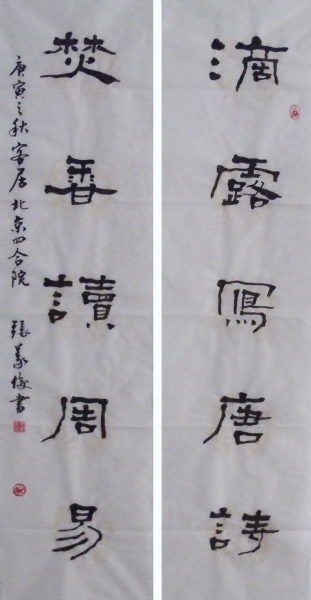 滴露寫唐詩
焚香讀周易
庚寅之秋客居北京四合院 張義俊書